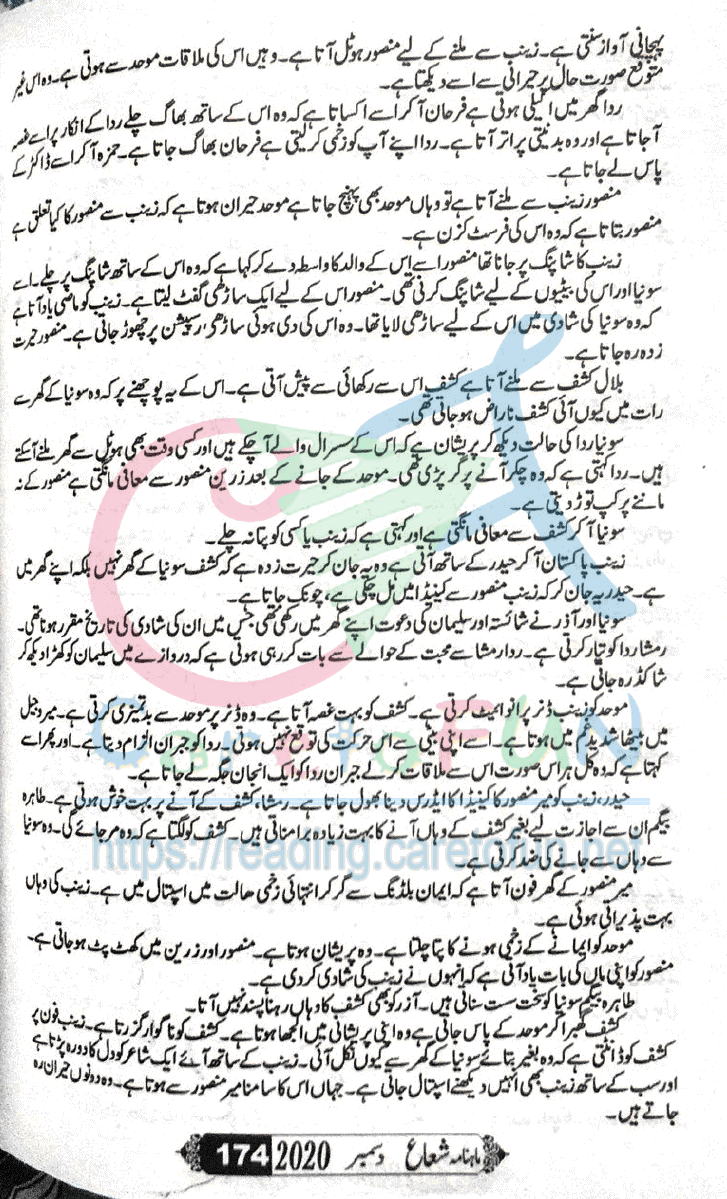 پہچانی آواز سنتی ہے۔ زینب سے ملنے کے لیے منصور ہوٹل آتا ہے۔ وہیں اس کی ملاقات موحد سے ہوتی ہے۔ وہ اس غیر
متوقع صورت حال پر حیرانی سے اسے دیکھتا ہے۔
ردا گھر میں اکیلی ہوتی ہے فرحان آ کر اسے اکساتا ہے کہ وہ اس کے ساتھ بھاگ چلے ردا کے انکار پر اسے غصہ
آ جاتا ہے اور وہ بدنیتی پر اتر آتا ہے۔ ردا اپنے آپ کو زخمی کر لیتی ہے فرحان بھاگ جاتا ہے۔ حمزہ آ کر اسے ڈاکٹر کے
پاس لے جاتا ہے۔
منصور زینب سے ملنے آتا ہے تو وہاں موحد بھی پہنچ جاتا ہے موحد حیران ہوتا ہے کہ زینب سے منصور کا کیا تعلق ہے
منصور بتاتا ہے کہ وہ اس کی فرسٹ کزن ہے۔
زینب کا شاپنگ پر جانا تھا منصور اسے اس کے والد کا واسطہ دے کر کہا ہے کہ وہ اس کے ساتھ شاپنگ پر چلے۔ اسے
سونیا اور اس کی بیٹیوں کے لیے شاپنگ کرنی تھی۔ منصور اس کے لیے ایک ساڑھی گفٹ لیتا ہے۔ زینب کو ماضی یاد آتا ہے
کہ وہ سونیا کی شادی میں اس کے لیے ساڑھی لایا تھا۔ وہ اس کی دی ہوئی ساڑھی رسیپشن پر چھوڑ جاتی ہے۔ منصور حیرت
زدہ رہ جاتا ہے۔
بلال کشف سے ملنے آتا ہے کشف اس سے رکھائی سے پیش آتی ہے۔ اس کے یہ پوچھنے پر کہ وہ سونیا کے گھر سے
رات میں کیوں آئی کشف ناراض ہو جاتی تھی۔
سونیا ردا کی حالت دیکھ کر پریشان ہے کہ اس کے سسرال والے آ چکے ہیں اور کسی وقت بھی ہوٹل سے گھر ملنے آ سکتے
ہیں۔ ردا کہتی ہے کہ وہ چکر آنے پر گر پڑی تھی۔ موحد کے جانے کے بعد زرین منصور سے معافی مانگتی ہے منصور کے نہ
ماننے پر کپ توڑ دیتی ہے۔
سونیا آ کر کشف سے معافی مانگتی ہے اور کہتی ہے کہ زینب یا کسی کو پتا نہ چلے۔
زینب پاکستان آ کر حیدر کے ساتھ آتی ہے وہ یہ جان کر حیرت زدہ ہے کہ کشف سونیا کے گھر نہیں بلکہ اپنے گھر میں
ہے۔ حیدر یہ جان کر کہ زینب منصور سے کینیڈا میں مل چکی ہے، چونک جاتا ہے۔
سونیا اور آذر نے شائستہ اور سلیمان کی دعوت اپنے گھر میں رکھی تھی جس میں ان کی شادی کی تاریخ مقرر ہونا تھی۔
رمشا ردا کو تیار کرتی ہے۔ ردا رمشا سے محبت کے حوالے سے بات کر رہی ہوتی ہے کہ دروازے میں سلیمان کو کھڑا دیکھ کر
شاکڈ رہ جاتی ہے۔
موحد کو زینب ڈنر پر انوائیٹ کرتی ہے۔ کشف کو بہت غصہ آتا ہے۔ وہ ڈنر پر موحد سے بدتمیزی کرتی ہے۔ میر وجیل
میں بیٹھا شدید غم میں ہوتا ہے۔ اسے اپنی بیٹی سے اس حرکت کی توقع نہیں ہوتی۔ ردا کو جبران الزام دیتا ہے۔ اور پھر اسے
کہتا ہے کہ وہ کل ہر اس صورت اس سے ملاقات کرلے جبران ردا کو ایک انجان جگہ لے جاتا ہے۔
حیدر، زینب کو میر منصور کا کینیڈا کا ایڈرس دینا بھول جاتا ہے۔ رمشا، کشف کے آنے پر بہت خوش ہوتی ہے۔ طاہرہ
بیگم ان سے اجازت لیے بغیر کشف کے وہاں آنے کا بہت زیادہ برا مناتی ہیں۔ کشف کو لگتا ہے کہ وہ مر جائے گی۔ وہ سونیا
سے وہاں سے جانے کی ضد کرتی ہے۔
میر منصور کے گھر فون آتا ہے کہ ایمان بلڈنگ سے گر کر انتہائی زخمی حالت میں اسپتال میں ہے۔ زینب کی وہاں
بہت پذیرائی ہوتی ہے۔
موحد کو ایمانے کے زخمی ہونے کا پتا چلتا ہے۔ وہ پریشان ہوتا ہے۔ منصور اور زرین میں کھٹ پٹ ہو جاتی ہے۔
منصور کو اپنی ماں کی بات یاد آتی ہے کہ انہوں نے زینب کی شادی کر دی ہے۔
طاہرہ بیگم سونیا کو سخت ست سناتی ہیں۔ آزر کو بھی کشف کا وہاں رہنا پسند نہیں آتا۔
کشف گھبرا کر موحد کے پاس جاتی ہے وہ اپنی پریشانی میں الجھا ہوتا ہے۔ کشف کو ناگوار گزرتا ہے۔ زینب فون پر
کشف کو ڈانٹتی ہے کہ وہ بغیر بتائے سونیا کے گھر سے کیوں نکل آئی۔ زینب کے ساتھ آئے ایک شاعر کو دل کا دورہ پڑتا ہے
اور سب کے ساتھ زینب بھی انہیں دیکھنے اسپتال جاتی ہے۔ جہاں اس کا سامنا میر منصور سے ہوتا ہے۔ وہ دونوں حیران رہ
جاتے ہیں۔
CaretoFUN
https://reading.caretofun.net
ماہنامہ شعاع دسمبر 2020 174